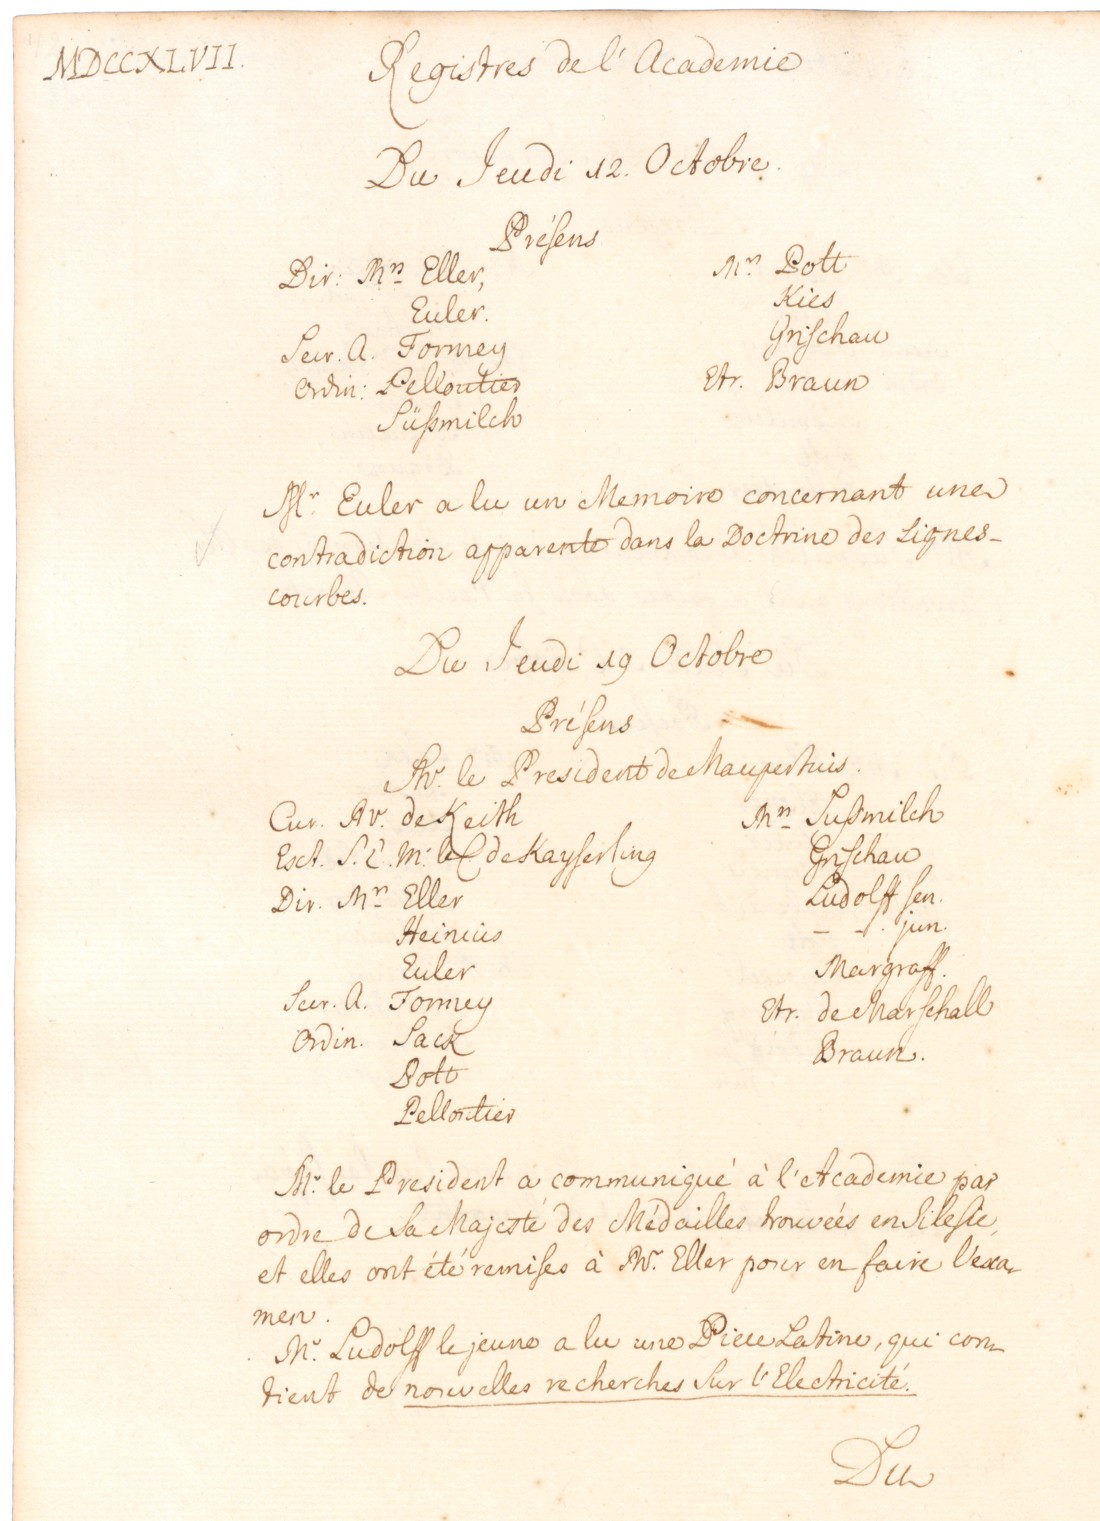 MDCCXLVII.
Registres de l'Academie
Du Jeudi 12. Octobre.
Présens
Dir: Mrs Eller,
Euler.
Secr. A. Formey
Ordin: Pelloutier
Süßmilch
Mrs Pott
Kies
Grischau
Etr. Braun
Mr. Euler a lu un Memoire concernant une
contradiction apparente dans la Doctrine des Lignes-
courbes.
Du Jeudi 19 Octobre
Présens
Mr. le President de Maupertuis.
Cur. Mr. de Keith
Extr. S. E. Mr. le C de Kayserling
Dir. Mrs Eller
Heinius
Euler
Secr. A. Formey
Ordin. Sack
Pott
Pelloutier
Mrs Sußmilch
Grischau
Ludolff sen.
- - . jun.
Margraff.
Etr. de Marschall
Braun.
Mr. le President a communiqué à l'Academie par
ordre de Sa Majesté des Médailles trouvées en Silesie,
et elles ont été remises à Mr. Eller pour en faire l'exa-
men.
Mr. Ludolff le jeune a lu une Piece Latine, qui con-
tient de nouvelles recherches sur l'Electricité.
Du